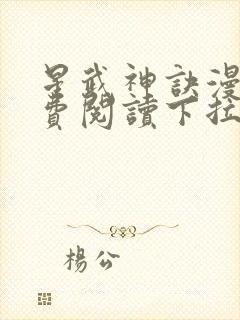 星武神訣漫
費閱讀下拉
楊公